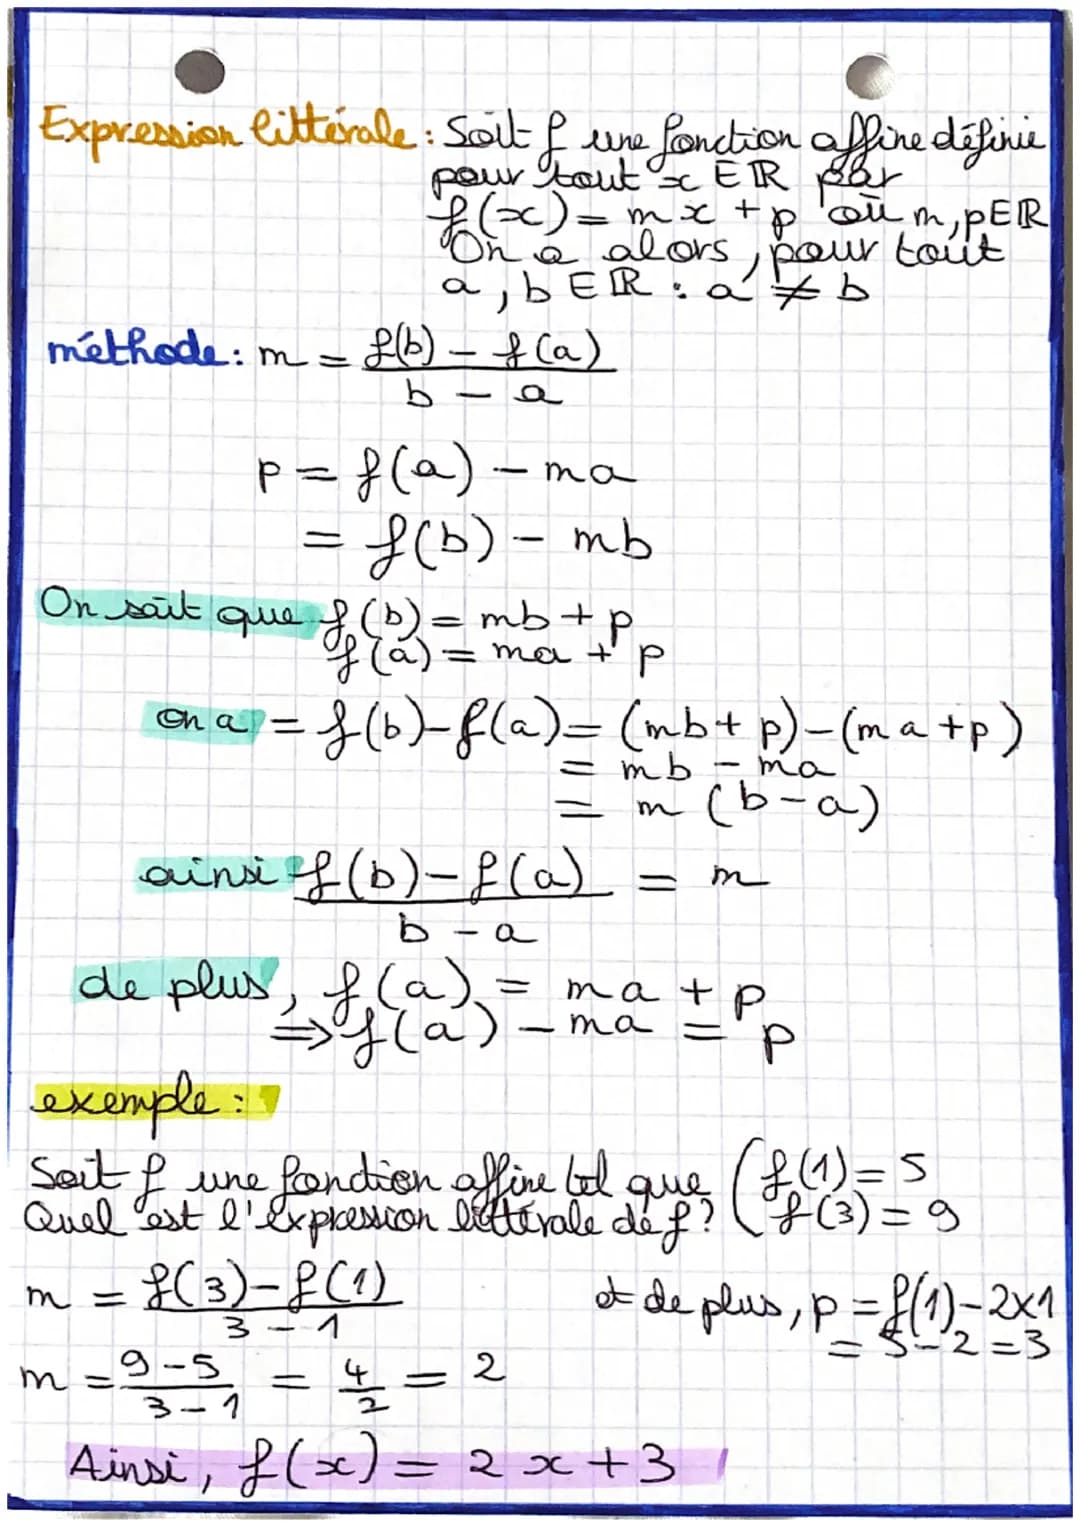 Expression littérale : Soit f une fonction affine définie
pour tout x ∈ ℝ par
f(x) = mx + p où m, p ∈ ℝ
On a alors, pour tout
a, b ∈ ℝ : a ≠ b
méthode : m = f(b) - f(a)
b - a
p = f(a) - ma
= f(b) - mb
On sait que f(b) = mb + p
f(a) = ma + p
on a = f(b) - f(a) = (mb + p) - (ma + p)
= mb - ma
= m (b - a)
ainsi f(b) - f(a) = m
b - a
de plus, f(a) = ma + p
⇒ f(a) - ma = p
exemple :
Soit f une fonction affine tel que ( f(1) = 5
Quel est l'expression littérale de f ? ( f(3) = 9
m = f(3) - f(1)
3 - 1
et de plus, p = f(1) - 2x1
= 5 - 2 = 3
m = 9 - 5 = 4 = 2
3 - 1 2
Ainsi, f(x) = 2x + 3